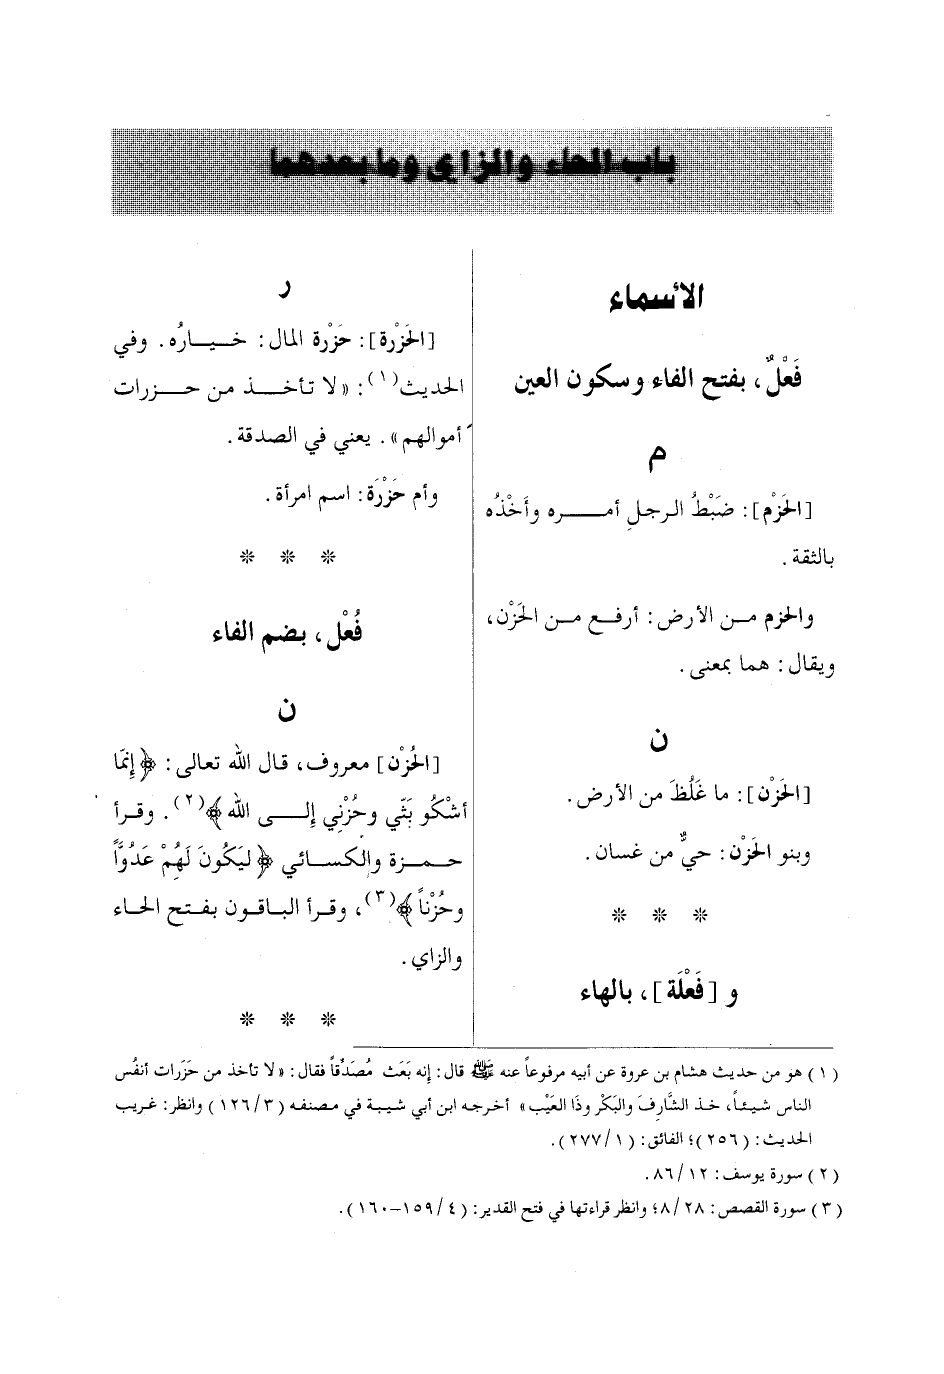 باب الحاء والزاي وما بعدهما
الأسماء
فَعْلٌ، بفتح الفاء وسكون العين
م
[الحَزْم]: ضَبْطُ الرجلِ أمـره وأَخْذُه
بالثقة.
والحزم مـن الأرض: أرفـع مـن الحَزْن،
ويقال: هما بمعنى.
ن
[الحَزْن]: ما غَلُظَ من الأرض.
وبنو الحَزْن: حيٌّ من غسان.
* * *
و [فَعْلَة]، بالهاء
ر
[الحَزْرة]: حَزْرة المال: خيـارُه. وفي
الحديث(١): «لا تأخـذ من حـزرات
أموالهم». يعني في الصدقة.
وأم حَزْرَة: اسم امرأة.
* * *
فُعْل، بضم الفاء
ن
[الحُزْن] معروف، قال الله تعالى: ﴿إِنَّمَا
أشْكُو بَثِّي وحُزْنِي إلـى الله﴾(٢). وقـرأ
حمـزة والكسـائي ﴿لِيَكُونَ لَهُمْ عَدُوًّا
وحُزْناً﴾(٣)، وقـرأ الباقـون بفتـح الحـاء
والزاي.
* * *
(١) هو من حديث هشام بن عروة عن أبيه مرفوعاً عنه ﷺ قال: إنه بَعَث مُصَدِّقاً فقال: «لا تأخذ من حَزَرات أنفُس
الناس شيـئـاً، خـذ الشَّارِفَ والبَكْر وذَا العَيْب» أخـرجـه ابن أبي شـيـبـة في مـصنفـه (٣/١٢٦) وانظر: غـريب
الحديث: (٢٥٦)؛ الفائق: (١/٢٧٧).
(٢) سورة يوسف: ١٢/٨٦.
(٣) سورة القصص: ٢٨/٨؛ وانظر قراءتها في فتح القدير: (٤/١٥٩-١٦٠).